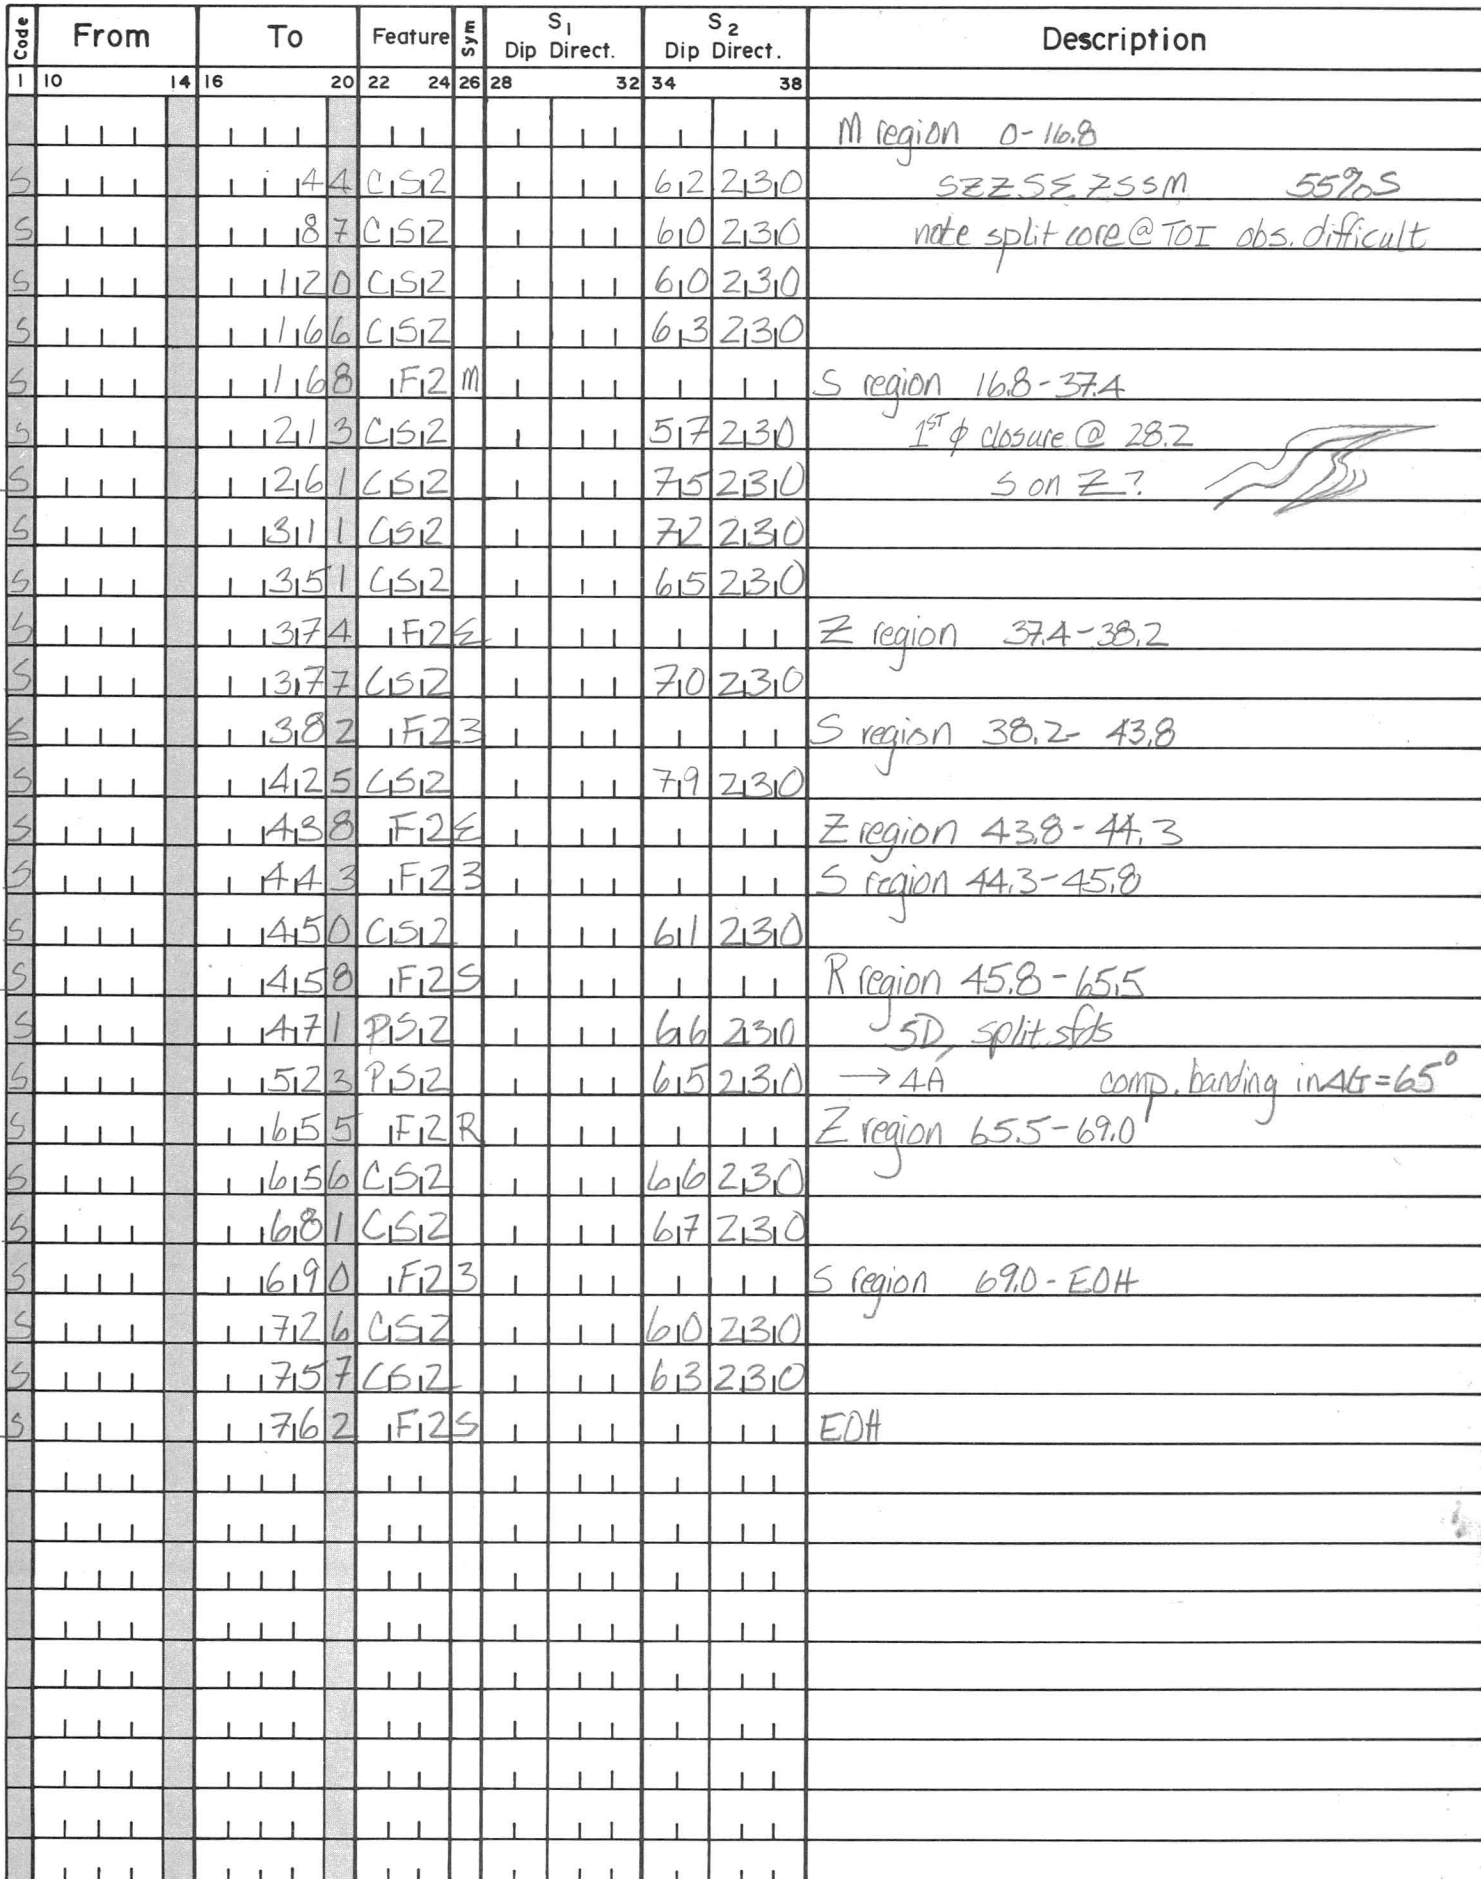 Code From To Feature Sym S1 Dip Direct. S2 Dip Direct. Description
1 10 14 16 20 22 24 26 28 32 34 38
M region 0-16.8
S 44 CS2 62 230 SZZSΣZSSM 55%S
S 87 CS2 60 230 note split core @ TOI obs. difficult
S 120 CS2 60 230
S 166 CS2 63 230
S 168 F2 M S region 16.8-37.4
S 213 CS2 57 230 1ST φ closure @ 28.2
S 261 CS2 75 230 S on Z?
S 311 CS2 72 230
S 351 CS2 65 230
S 374 F2 Σ Z region 37.4-38.2
S 377 CS2 70 230
S 382 F2 3 S region 38.2-43.8
S 425 CS2 79 230
S 438 F2 Σ Z region 43.8-44.3
S 443 F2 3 S region 44.3-45.8
S 450 CS2 61 230
S 458 F2 S R region 45.8-65.5
S 471 PS2 66 230 5D, split sfds
S 523 PS2 65 230 → 4A comp. banding in =65°
S 655 F2 R Z region 65.5-69.0
S 656 CS2 66 230
S 681 CS2 67 230
S 690 F2 3 S region 69.0-EOH
S 726 CS2 60 230
S 757 CS2 63 230
S 762 F2 S EOH